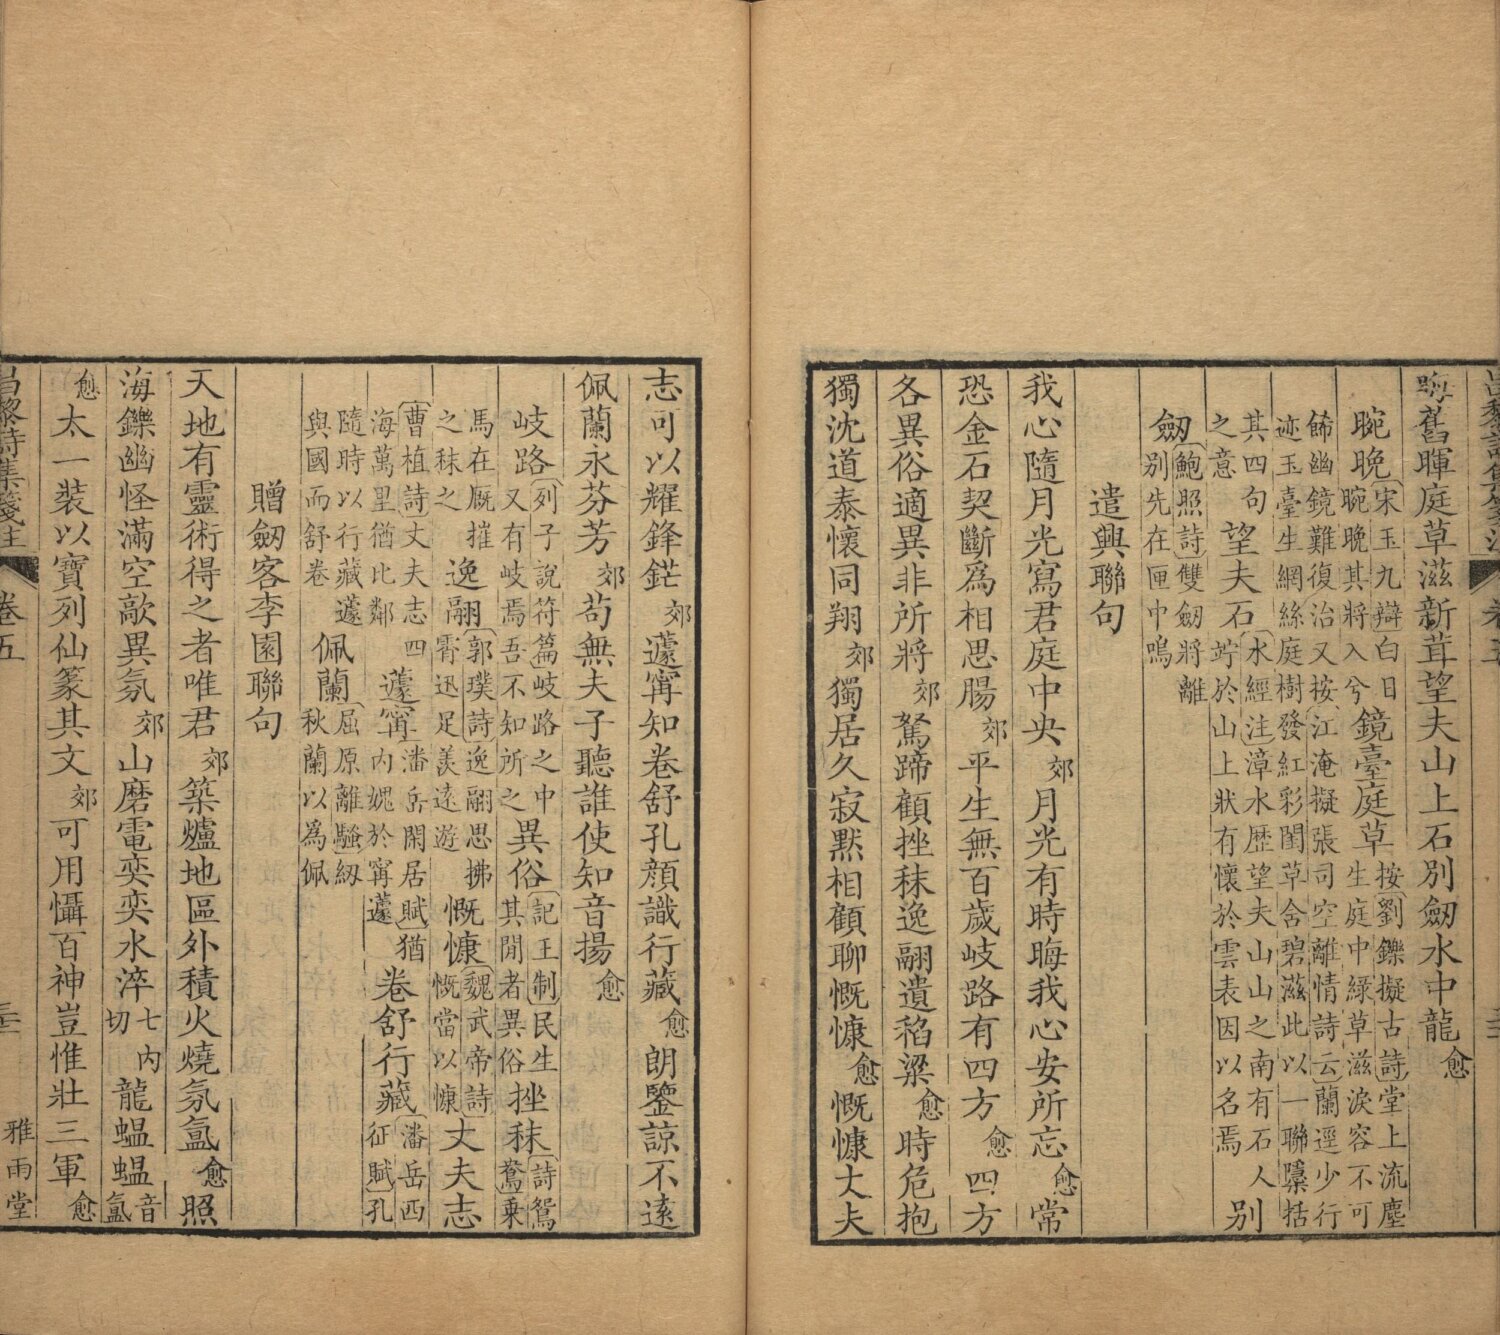 昌黎詩集箋注
卷五
晦舊暉庭草滋新茸望夫山上石別劒水中龍愈
晼晚宋玉九辯白日晼晚其將入兮鏡臺庭草按劉鑠擬古詩堂上流塵生庭中綠草滋淚容不可
飾幽鏡難復治又按江淹擬張司空離情詩云蘭逕少行迹玉臺生網絲庭樹發紅彩閨草含碧滋此以一聯櫽括
其四句之意望夫石水經注漳水歷望夫山山之南有石人竚於山上狀有懷於雲表因以名焉別
劒鮑照詩雙劒將離別先在匣中鳴
遣興聯句
我心隨月光寫君庭中央郊月光有時晦我心安所忘愈常
恐金石契斷爲相思腸郊平生無百歲岐路有四方愈四方
各異俗適異非所將郊駑蹄顧挫秣逸翮遺稻粱愈時危抱
獨沈道泰懷同翔郊獨居久寂默相顧聊慨慷愈慨慷丈夫
志可以耀鋒鋩郊蘧甯知卷舒孔顔識行藏愈朗鑒諒不遠
佩蘭永芬芳郊苟無夫子聽誰使知音揚愈
岐路列子說符篇岐路之中又有岐焉吾不知所之異俗記王制民生其閒者異俗挫秣詩鴛鴦乘
馬在廐摧之秣之逸翮郭璞詩逸翮思拂霄迅足羨遠遊慨慷魏武帝詩慨當以慷丈夫志
曹植詩丈夫志四海萬里猶比鄰蘧甯潘岳閑居賦猶內媿於甯蘧卷舒行藏潘岳西征賦孔
隨時以行藏蘧與國而舒卷佩蘭屈原離騷紉秋蘭以爲佩
贈劒客李園聯句
天地有靈術得之者唯君郊築爐地區外積火燒氛氳愈照
海鑠幽怪滿空歊異氛郊山磨電奕奕水淬七內切龍蝹蝹音氳
愈太一裝以寶列仙篆其文郊可用懾百神豈惟壯三軍愈
昌黎詩集箋注
卷五
雅雨堂